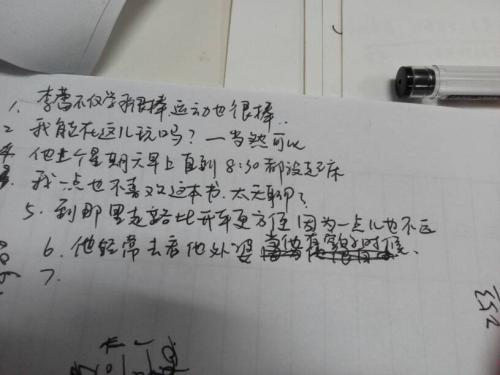 1. 李蕾不仅学习很棒 运动也很棒.
2 我能在这儿玩吗？一当然可以
他上个星期天早上直到8:30都没起床
我一点也不喜欢这本书.太无聊了
5. 到那里走路比开车更方便 因为一点儿也不远
6. 他经常去看他外婆
7.